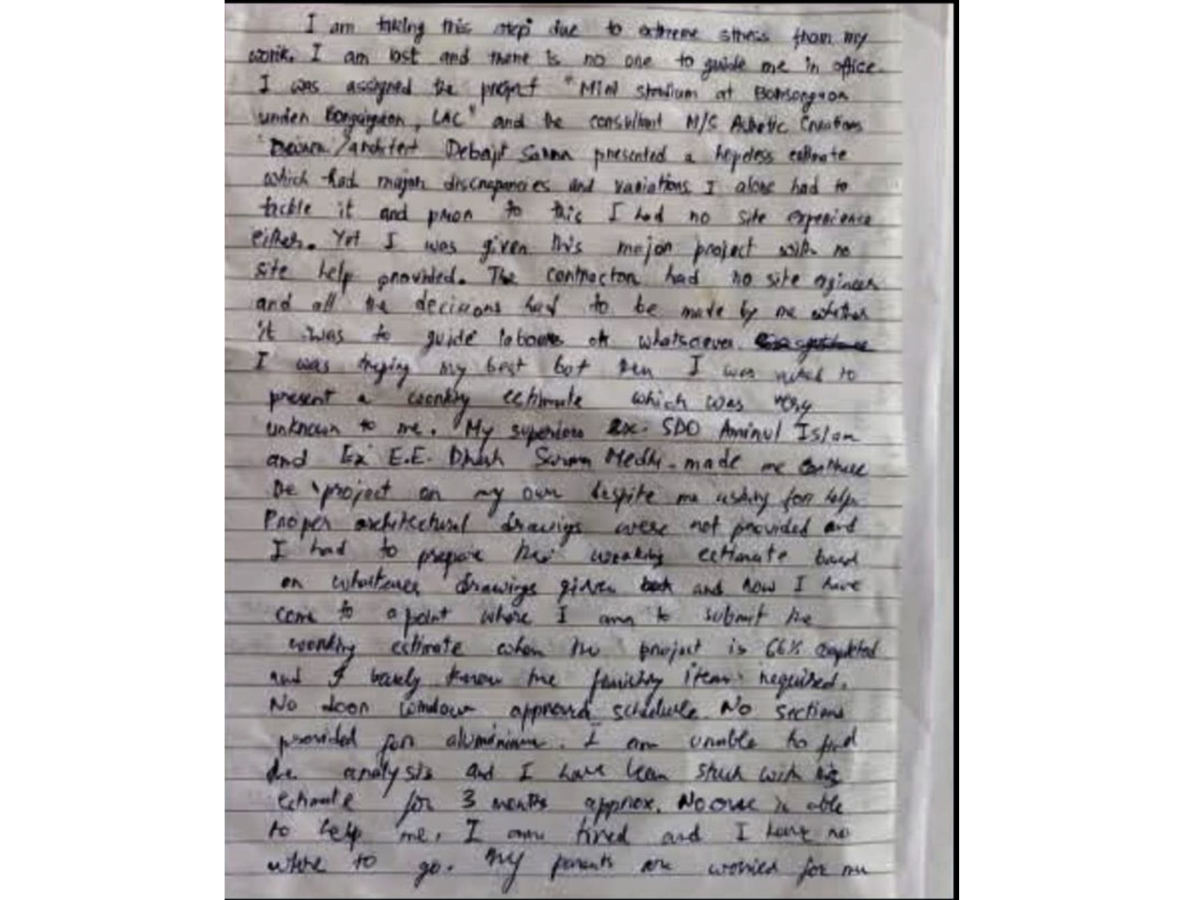 I am taking this step due to extreme stress from my
work. I am lost and there is no one to guide me in office.
I was assigned the project "Mini stadium at
under LAC" and the consultant M/S Creations
architect Debajit Sarma presented a hopeless estimate
which had major discrepancies and variations I alone had to
tackle it and prior to this I had no site experience
either. Yet I was given this major project with no
site help provided. The contractor had no site engineer
and all the decisions had to be made by me whether
it was to guide labours or whatsoever.
I was trying my best but then I was asked to
present a working estimate which was very
unknown to me. My superiors Ex. SDO Aminul Islam
and Ex E.E. made me continue
the project on my own despite me asking for help.
Proper architectural drawings were not provided and
I had to prepare the working estimate based
on whatever drawings given and now I have
come to a point where I am to submit the
working estimate when the project is 66% completed
and I barely know the finishing items required.
No door window approved schedule. No sections
provided for aluminium. I am unable to find
the analysis and I have been stuck with this
estimate for 3 months approx. No one is able
to help me. I am tired and I have no
where to go. My parents are worried for me